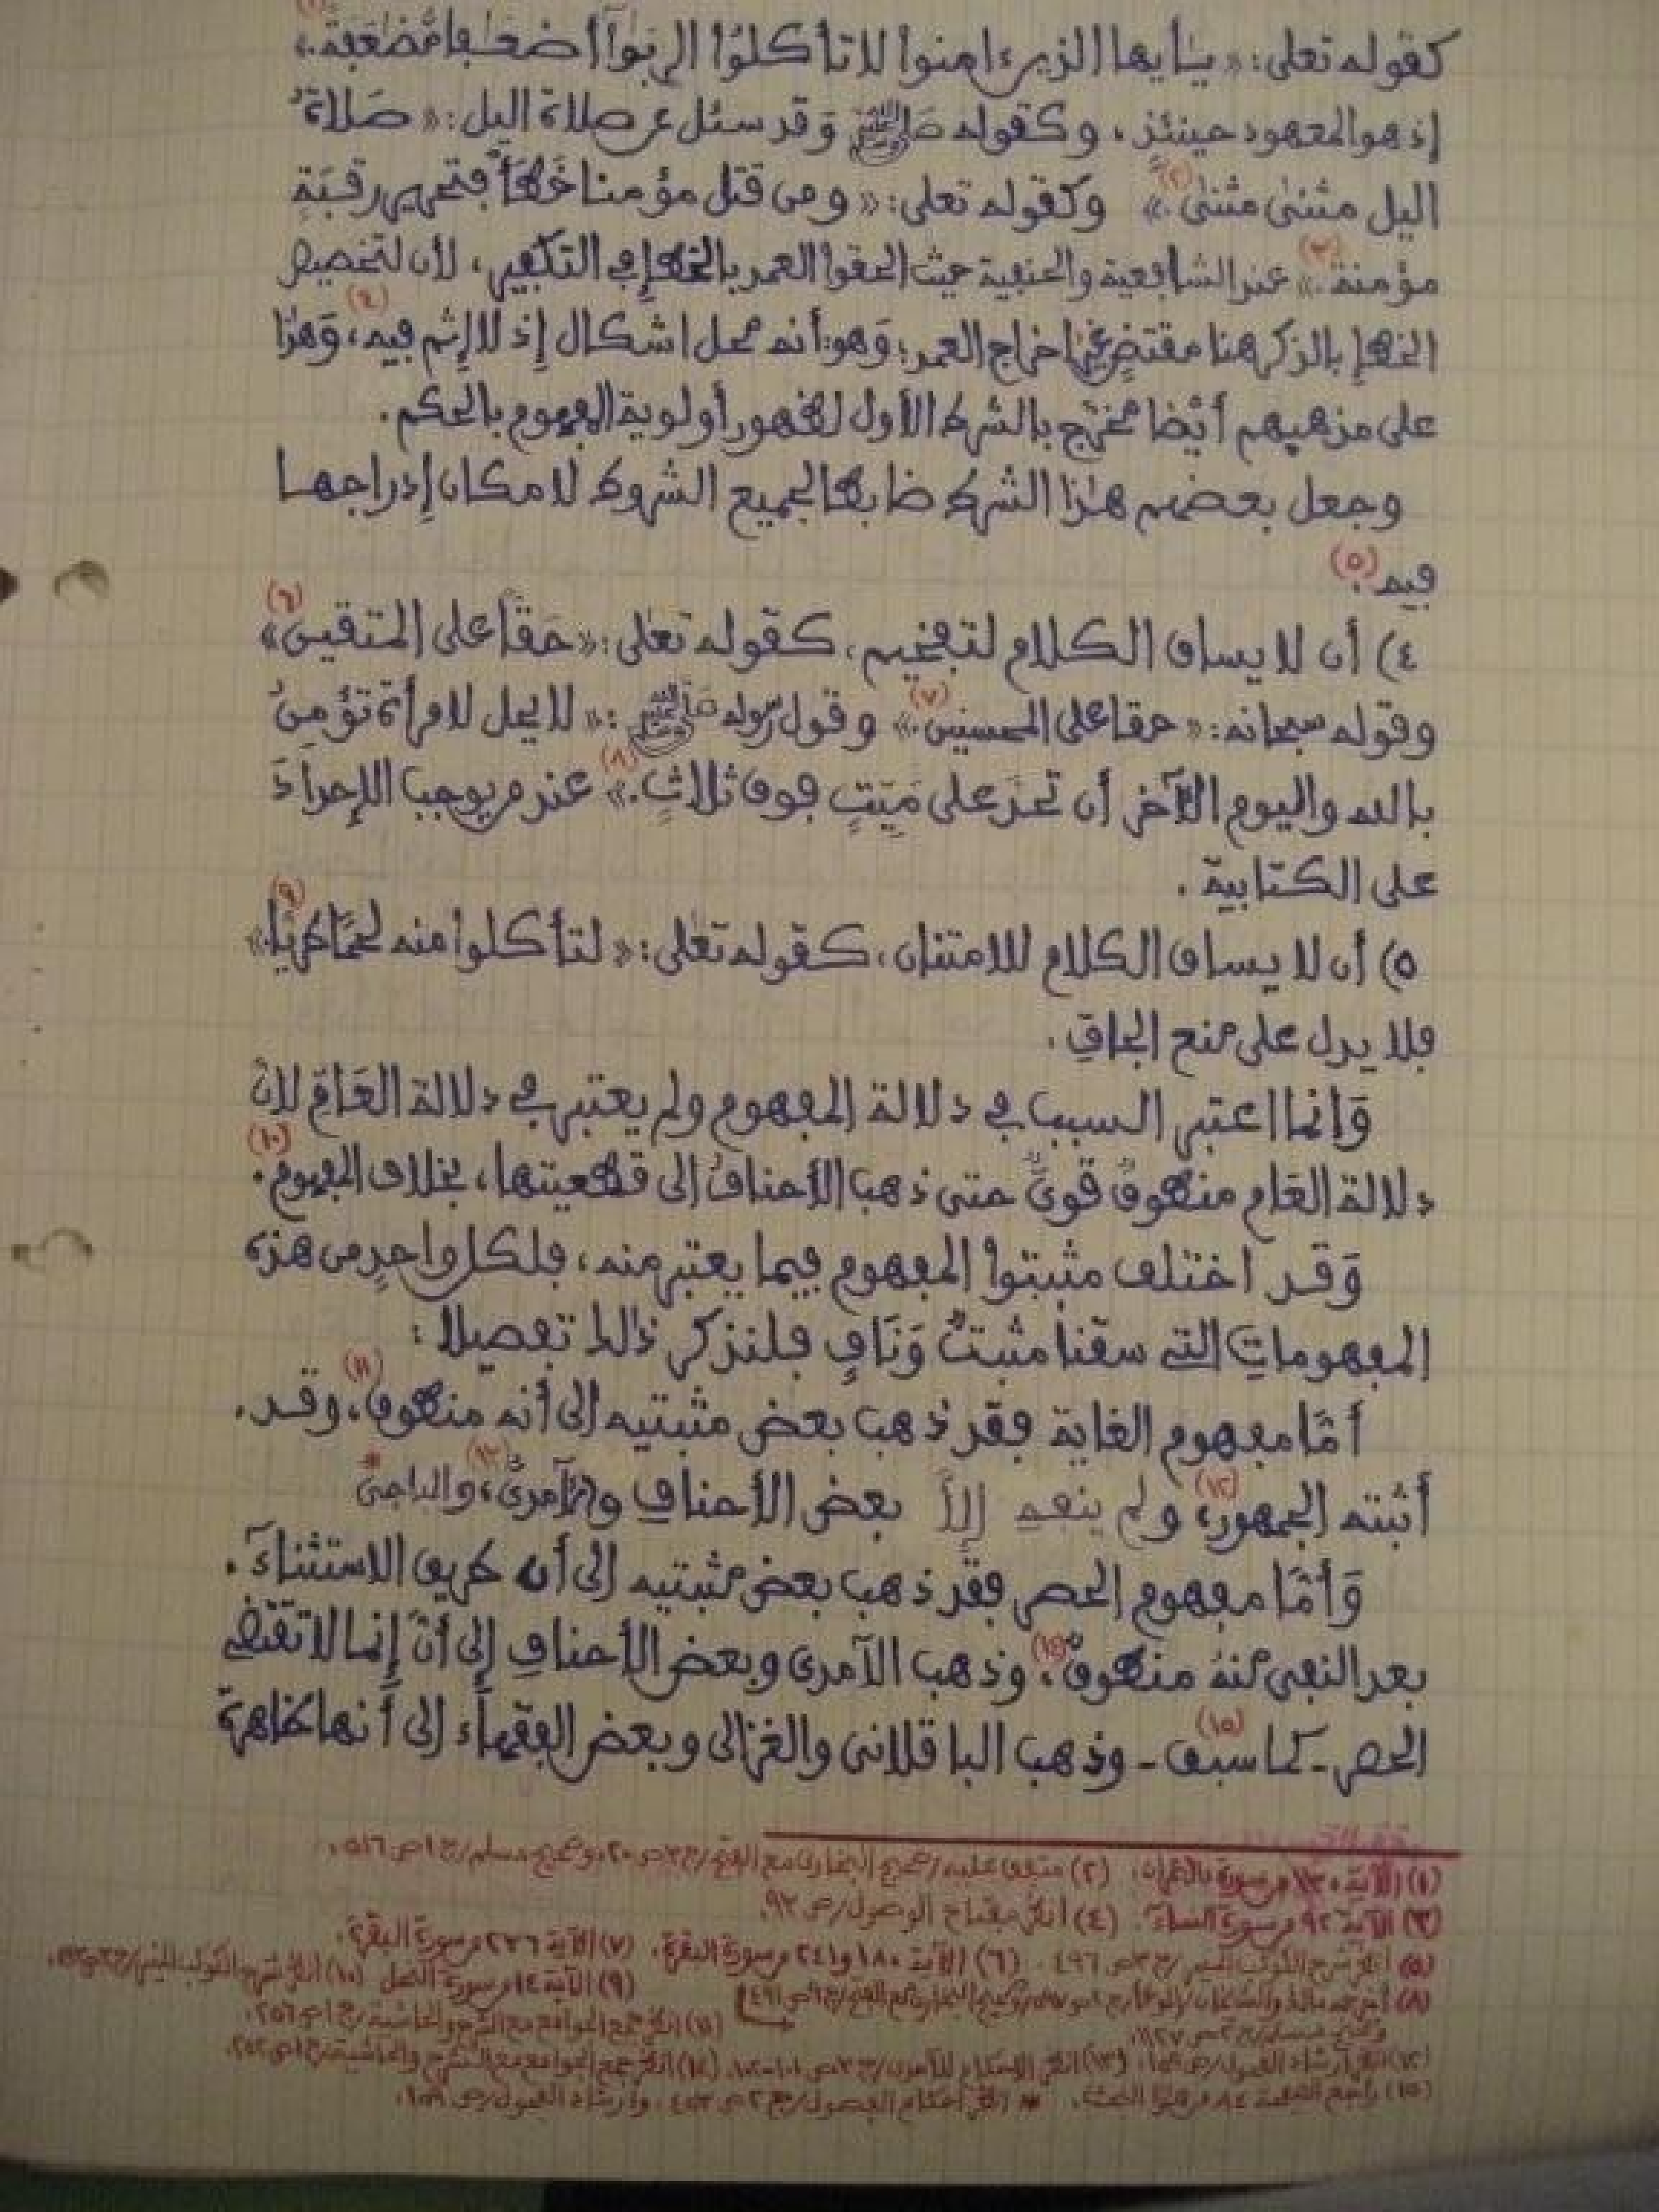 كقوله تعلى: «يٰأيها الذين ءامنوا لا تأكلوا الربوٰا أضعٰفا مُّضٰعَفة.» (١)
إذ هو المعهود حينئذ، وكقوله ﷺ وقد سئل عن صلاة اليل: «صَلاةُ
اليل مثنىٰ مثنىٰ.» (٢) وكقوله تعلى: «ومن قتل مؤمنا خَطَأً فتحرير رقبَةٍ
مؤمنة.» (٣) عند الشافعية والحنفية حيث ألحقوا العمد بالخطإ في التكفير، لأن لتخصيص
الخطإ بالذكر هنا مقتضٍ غيرَ إخراج العمد؛ وَهو: أنه محل اشكال إذ لا إثم فيه (٤)، وَهذا
على مذهبهم أيْضا مخرَج بالشرط الأول لظهور أولوية المفهوم بالحكم.
وجعل بعضهم هٰذا الشرط ضابطا لجميع الشروط لامكان إدراجهــا
فيه (٥).
٤) أن لا يساق الكلام لتفخيم، كقوله تعٰلى: «حَقّاً على المتقين» (٦)
وقوله سبحانه: «حقا على المحسنين.» (٧) وقول رسوله ﷺ: «لا يحل لامرأة تؤمِنُ
بالله واليوم الآخر أن تحدّ على مَيّتٍ فوق ثلاثٍ.» (٨) عند من يوجب الإحدادَ
على الكتابية.
٥) أن لا يساق الكلام للامتنان، كقوله تعٰلى: «لتأكلوا منه لحمًا طريّا.» (٩)
فلا يدل على منع الجافّ.
وَإنما اعتبر السبب في دلالة المفهوم ولم يعتبر في دلالة العَامّ لانّ
دلالة العَام منطوقٌ قوىٌّ حتى ذهب الأحنافُ إلى قطعيتها، بخلاف المفهوم. (١٠)
وَقــد اختلف مثبتوا المفهوم فيما يعتبر منه، فلكل واحدٍ من هذه
المفهوماتِ التي سقنا مثبتٌ وَنَافٍ فلنذكر ذٰلك تفصيلا:
أمّا مفهوم الغاية فقد ذهب بعض مثبتيه إلى أنه منطوق (١١)، وقــد.
أثبته الجمهور (١٢)، ولم ينفه إلاّ بعض الأحنافِ والآمدىُّ (١٣)، والباجىُّ *
وَأمّا مفهوم الحصر فقد ذهب بعض مثبتيه إلى أن طريق الاستثناءَ.
بعد النفى منهُ منطوقٌ (١٤)، وذهب الآمدى وبعض الأحنافِ إلى أنّ إنما لا تقتضى
الحصر - كما سبق (١٥) - وذهب الباقلانى والغزالى وبعض الفقهاء إلى أنها ظاهرة
(١) الآية ١٣٠ من سورة ءال عمران. (٢) متفق عليه / صحيح البخارى مع الفتح / ج ٣ ص ٢٠ وصحيح مسلم / ج ١ ص ٥١٦.
(٣) الآية ٩٢ من سورة النساء. (٤) انظر مفتاح الوصول / ص ٩٣.
(٥) انظر شرح الكوكب المنير / ج ٣ ص ٤٩٦. (٦) الآية ١٨٠ و ٢٤١ من سورة البقرة. (٧) الآية ٢٣٦ من سورة البقرة.
(٨) أخرجه مالك والشيخان / مع الفتح / ج ٩ ص ٤٩١ (٩) الآية ١٤ من سورة النحل (١٠) انظر شرح الكوكب المنير / ج ٣
وصحيح مسلم / ج ٢ ص ١١٢٧. (١١) انظر جمع الجوامع مع الشرح والحاشية / ج ١ ص ٢٥٦.
(١٢) انظر إرشاد الفحول / ص (١٣) انظر الإحكام للآمدى / ج ٣ ص ١٠١-١٠٢. (١٤) انظر جمع الجوامع مع الشرح والحاشية / ج ١ ص
(١٥) راجع الصفحة ٨٤ من هذا البحث. * انظر أحكام الفصول / ج ٢ ص ٤٥٣، وإرشاد الفحول / ص